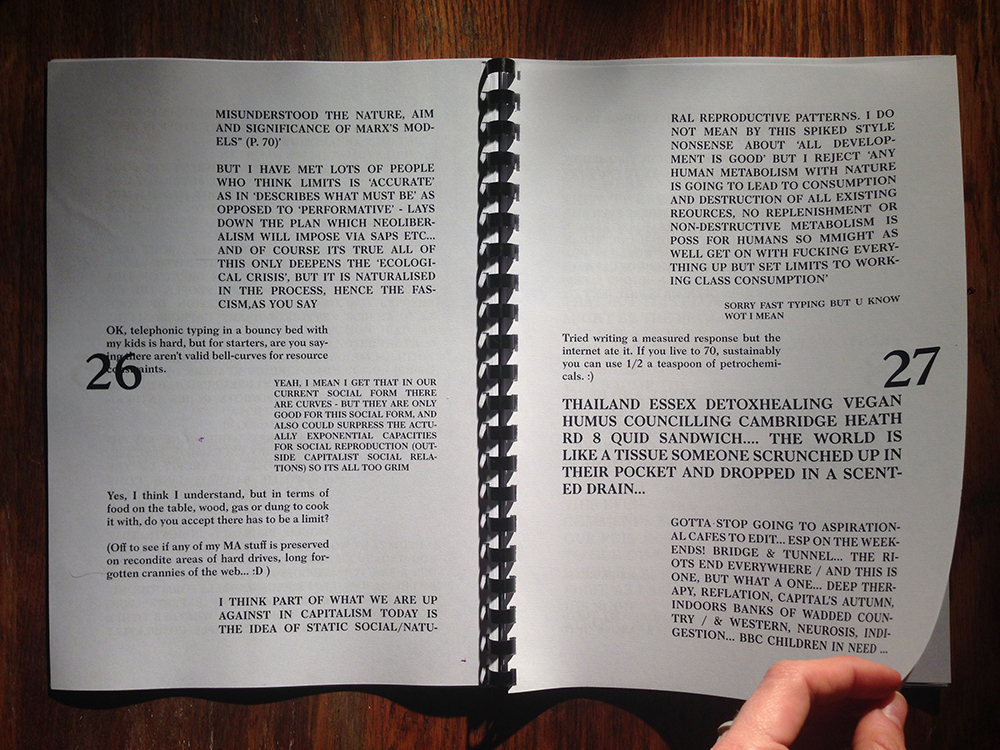 MISUNDERSTOOD THE NATURE, AIM
AND SIGNIFICANCE OF MARX'S MOD-
ELS” (P. 70)'
BUT I HAVE MET LOTS OF PEOPLE
WHO THINK LIMITS IS ‘ACCURATE’
AS IN ‘DESCRIBES WHAT MUST BE’ AS
OPPOSED TO ‘PERFORMATIVE’ - LAYS
DOWN THE PLAN WHICH NEOLIBER-
ALISM WILL IMPOSE VIA SAPS ETC...
AND OF COURSE ITS TRUE ALL OF
THIS ONLY DEEPENS THE ‘ECOLOGI-
CAL CRISIS’, BUT IT IS NATURALISED
IN THE PROCESS, HENCE THE FAS-
CISM,AS YOU SAY
OK, telephonic typing in a bouncy bed with
my kids is hard, but for starters, are you say-
ing there aren't valid bell-curves for resource
constraints.
26
YEAH, I MEAN I GET THAT IN OUR
CURRENT SOCIAL FORM THERE
ARE CURVES - BUT THEY ARE ONLY
GOOD FOR THIS SOCIAL FORM, AND
ALSO COULD SURPRESS THE ACTU-
ALLY EXPONENTIAL CAPACITIES
FOR SOCIAL REPRODUCTION (OUT-
SIDE CAPITALIST SOCIAL RELA-
TIONS) SO ITS ALL TOO GRIM
Yes, I think I understand, but in terms of
food on the table, wood, gas or dung to cook
it with, do you accept there has to be a limit?
(Off to see if any of my MA stuff is preserved
on recondite areas of hard drives, long for-
gotten crannies of the web... :D )
I THINK PART OF WHAT WE ARE UP
AGAINST IN CAPITALISM TODAY IS
THE IDEA OF STATIC SOCIAL/NATU-
RAL REPRODUCTIVE PATTERNS. I DO
NOT MEAN BY THIS SPIKED STYLE
NONSENSE ABOUT ‘ALL DEVELOP-
MENT IS GOOD’ BUT I REJECT ‘ANY
HUMAN METABOLISM WITH NATURE
IS GOING TO LEAD TO CONSUMPTION
AND DESTRUCTION OF ALL EXISTING
REOURCES, NO REPLENISHMENT OR
NON-DESTRUCTIVE METABOLISM IS
POSS FOR HUMANS SO MMIGHT AS
WELL GET ON WITH FUCKING EVERY-
THING UP BUT SET LIMITS TO WORK-
ING CLASS CONSUMPTION’
SORRY FAST TYPING BUT U KNOW
WOT I MEAN
Tried writing a measured response but the
internet ate it. If you live to 70, sustainably
you can use 1/2 a teaspoon of petrochemi-
cals. :)
27
THAILAND ESSEX DETOXHEALING VEGAN
HUMUS COUNCILLING CAMBRIDGE HEATH
RD 8 QUID SANDWICH.... THE WORLD IS
LIKE A TISSUE SOMEONE SCRUNCHED UP IN
THEIR POCKET AND DROPPED IN A SCENT-
ED DRAIN...
GOTTA STOP GOING TO ASPIRATION-
AL CAFES TO EDIT... ESP ON THE WEEK-
ENDS! BRIDGE & TUNNEL... THE RI-
OTS END EVERYWHERE / AND THIS IS
ONE, BUT WHAT A ONE... DEEP THER-
APY, REFLATION, CAPITAL'S AUTUMN,
INDOORS BANKS OF WADDED COUN-
TRY / & WESTERN, NEUROSIS, INDI-
GESTION... BBC CHILDREN IN NEED ...